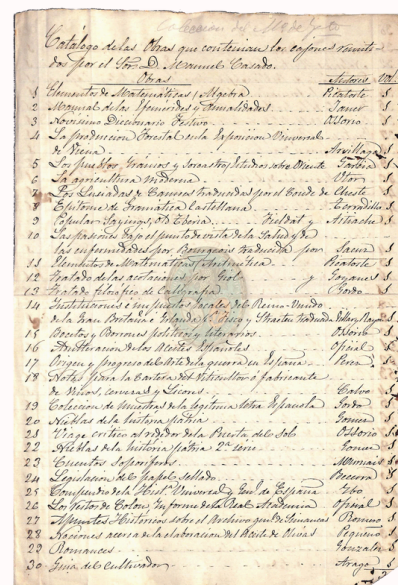 Catálogo de las Obras que contenian los cajones remiti-
dos por el Sor. D. Manuel Casado.
Obras Autores Vol.
1 Elementos de Matemáticas, Algebra Picatoste 1
2 Manual de las Efemérides y Anualidades 1
3 Novisimo Diccionario Festivo Ossorio 1
4 La produccion Forestal en la Exposicion Universal
de Viena Arrillaga 1
5 Los pueblos, Estudios sobre Oriente 1
6 La agricultura moderna 1
7 Los Lusiadas de Camoes traducidas por el Conde de Cheste 1
8 Epitome de Gramática Castellana 1
9 Popular Sayings
10 Las pasiones bajo el punto de vista de la Salud y de
las enfermedades por Bourgeois traducida por 1
11 Elementos de Matemáticas, Aritmetica Picatoste 1
12 Tratado de las por y Goyanes 1
13 Tratado de Caligrafia Gordo 1
14 Instituciones é impuestos locales del Reino-Unido
de la Gran Bretaña é Irlanda traducida
15 Bocetos y Borrones politicos y literarios Ossorio 1
16 de los Aceites Españoles Oficial 1
17 Origen y progreso del Arte de la guerra en España 1
18 Notas para la Cartera del Viticultor ó fabricante
de Vinos, cervezas y Licores Calvo 1
19 Coleccion de muestras de la legitima letra Española Gordo 1
20 Nieblas de la historia patria Gomez 1
21 Viage critico al rededor de la Puerta del Sol Ossorio 1
22 Nieblas de la historia patria 2ª serie Gomez 1
23 Cuentos Soporiferos 1
24 Legislacion del papel sellado Becerra 1
25 Compendio de la Histª Universal y de España 1
26 Los restos de Colon, Informe de la Real Academia Oficial 1
27 Apuntes Históricos sobre el Archivo de Simancas Romero 1
28 Nociones acerca de la elaboracion del Aceite de Olivas Pequeño 1
29 Romances Gonzalez 1
30 Guia del cultivador Arago 1